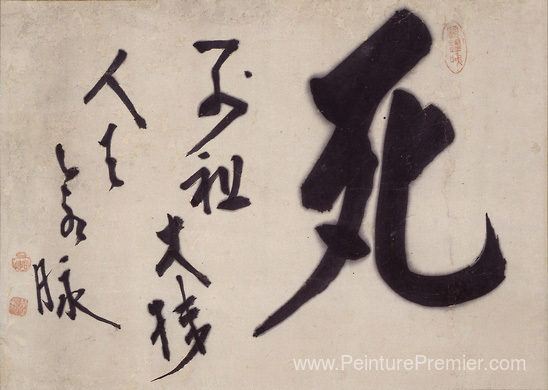 死
祖
大機
人天
脉
www.PeinturePremier.com